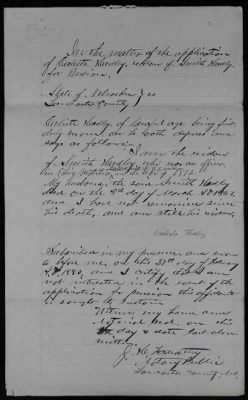 In the matter of the application
of Celeste Hardly, widow of Smith Hardly,
for Pension.
State of Nebraska } ss
Lancaster County }
Celeste Hadly of lawful age being first
duly sworn on oath deposes and
says as follows:
I am the widow
of Smith Hardly, who was an officer
in the
My husband, the said Smith Hardly
died on the 3rd day of March
and I have not remarried since
his death, and am still his widow.
Celeste Hadly
Subscribed in my presence and sworn
to before me, on this 27th day of February
A.D. 1883, and I certify that I am
not interested in the event of the
application for pension this affidavit
is sought to sustain.
Witness my hand and
Notorial Seal, on this
day & date last above
written
J. H.
Notary Public
Lancaster County Neb